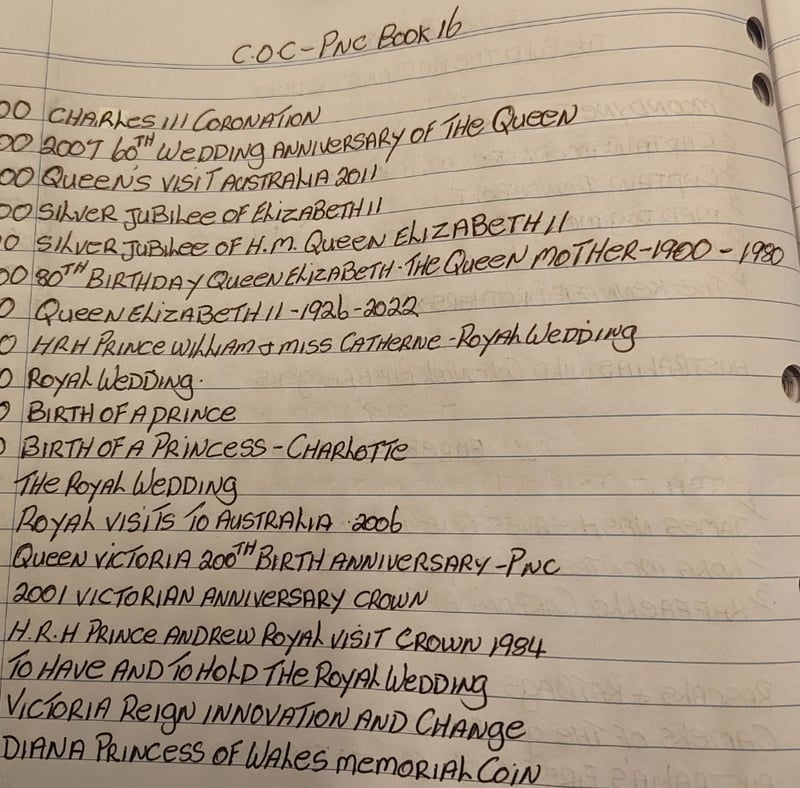 C.O.C-PNC BOOK 16
00 CHARLES III CORONATION
00 2007 60TH WEDDING ANNIVERSARY OF THE QUEEN
00 QUEEN'S VISIT AUSTRALIA 2011
00 SILVER JUBILEE OF ELIZABETH II
0 SILVER JUBILEE OF H.M. QUEEN ELIZABETH II
00 80TH BIRTHDAY QUEEN ELIZABETH-THE QUEEN MOTHER-1900-1980
0 QUEEN ELIZABETH II-1926-2022
0 HRH PRINCE WILLIAM & MISS CATHERNE-ROYAL WEDDING
0 ROYAL WEDDING.
0 BIRTH OF A PRINCE
0 BIRTH OF A PRINCESS-CHARLOTTE
THE ROYAL WEDDING
ROYAL VISITS TO AUSTRALIA 2006
QUEEN VICTORIA 200TH BIRTH ANNIVERSARY-PNC
2001 VICTORIAN ANNIVERSARY CROWN
H.R.H PRINCE ANDREW ROYAL VISIT CROWN 1984
TO HAVE AND TO HOLD THE ROYAL WEDDING
VICTORIA REIGN INNOVATION AND CHANGE
DIANA PRINCESS OF WALES MEMORIAL COIN